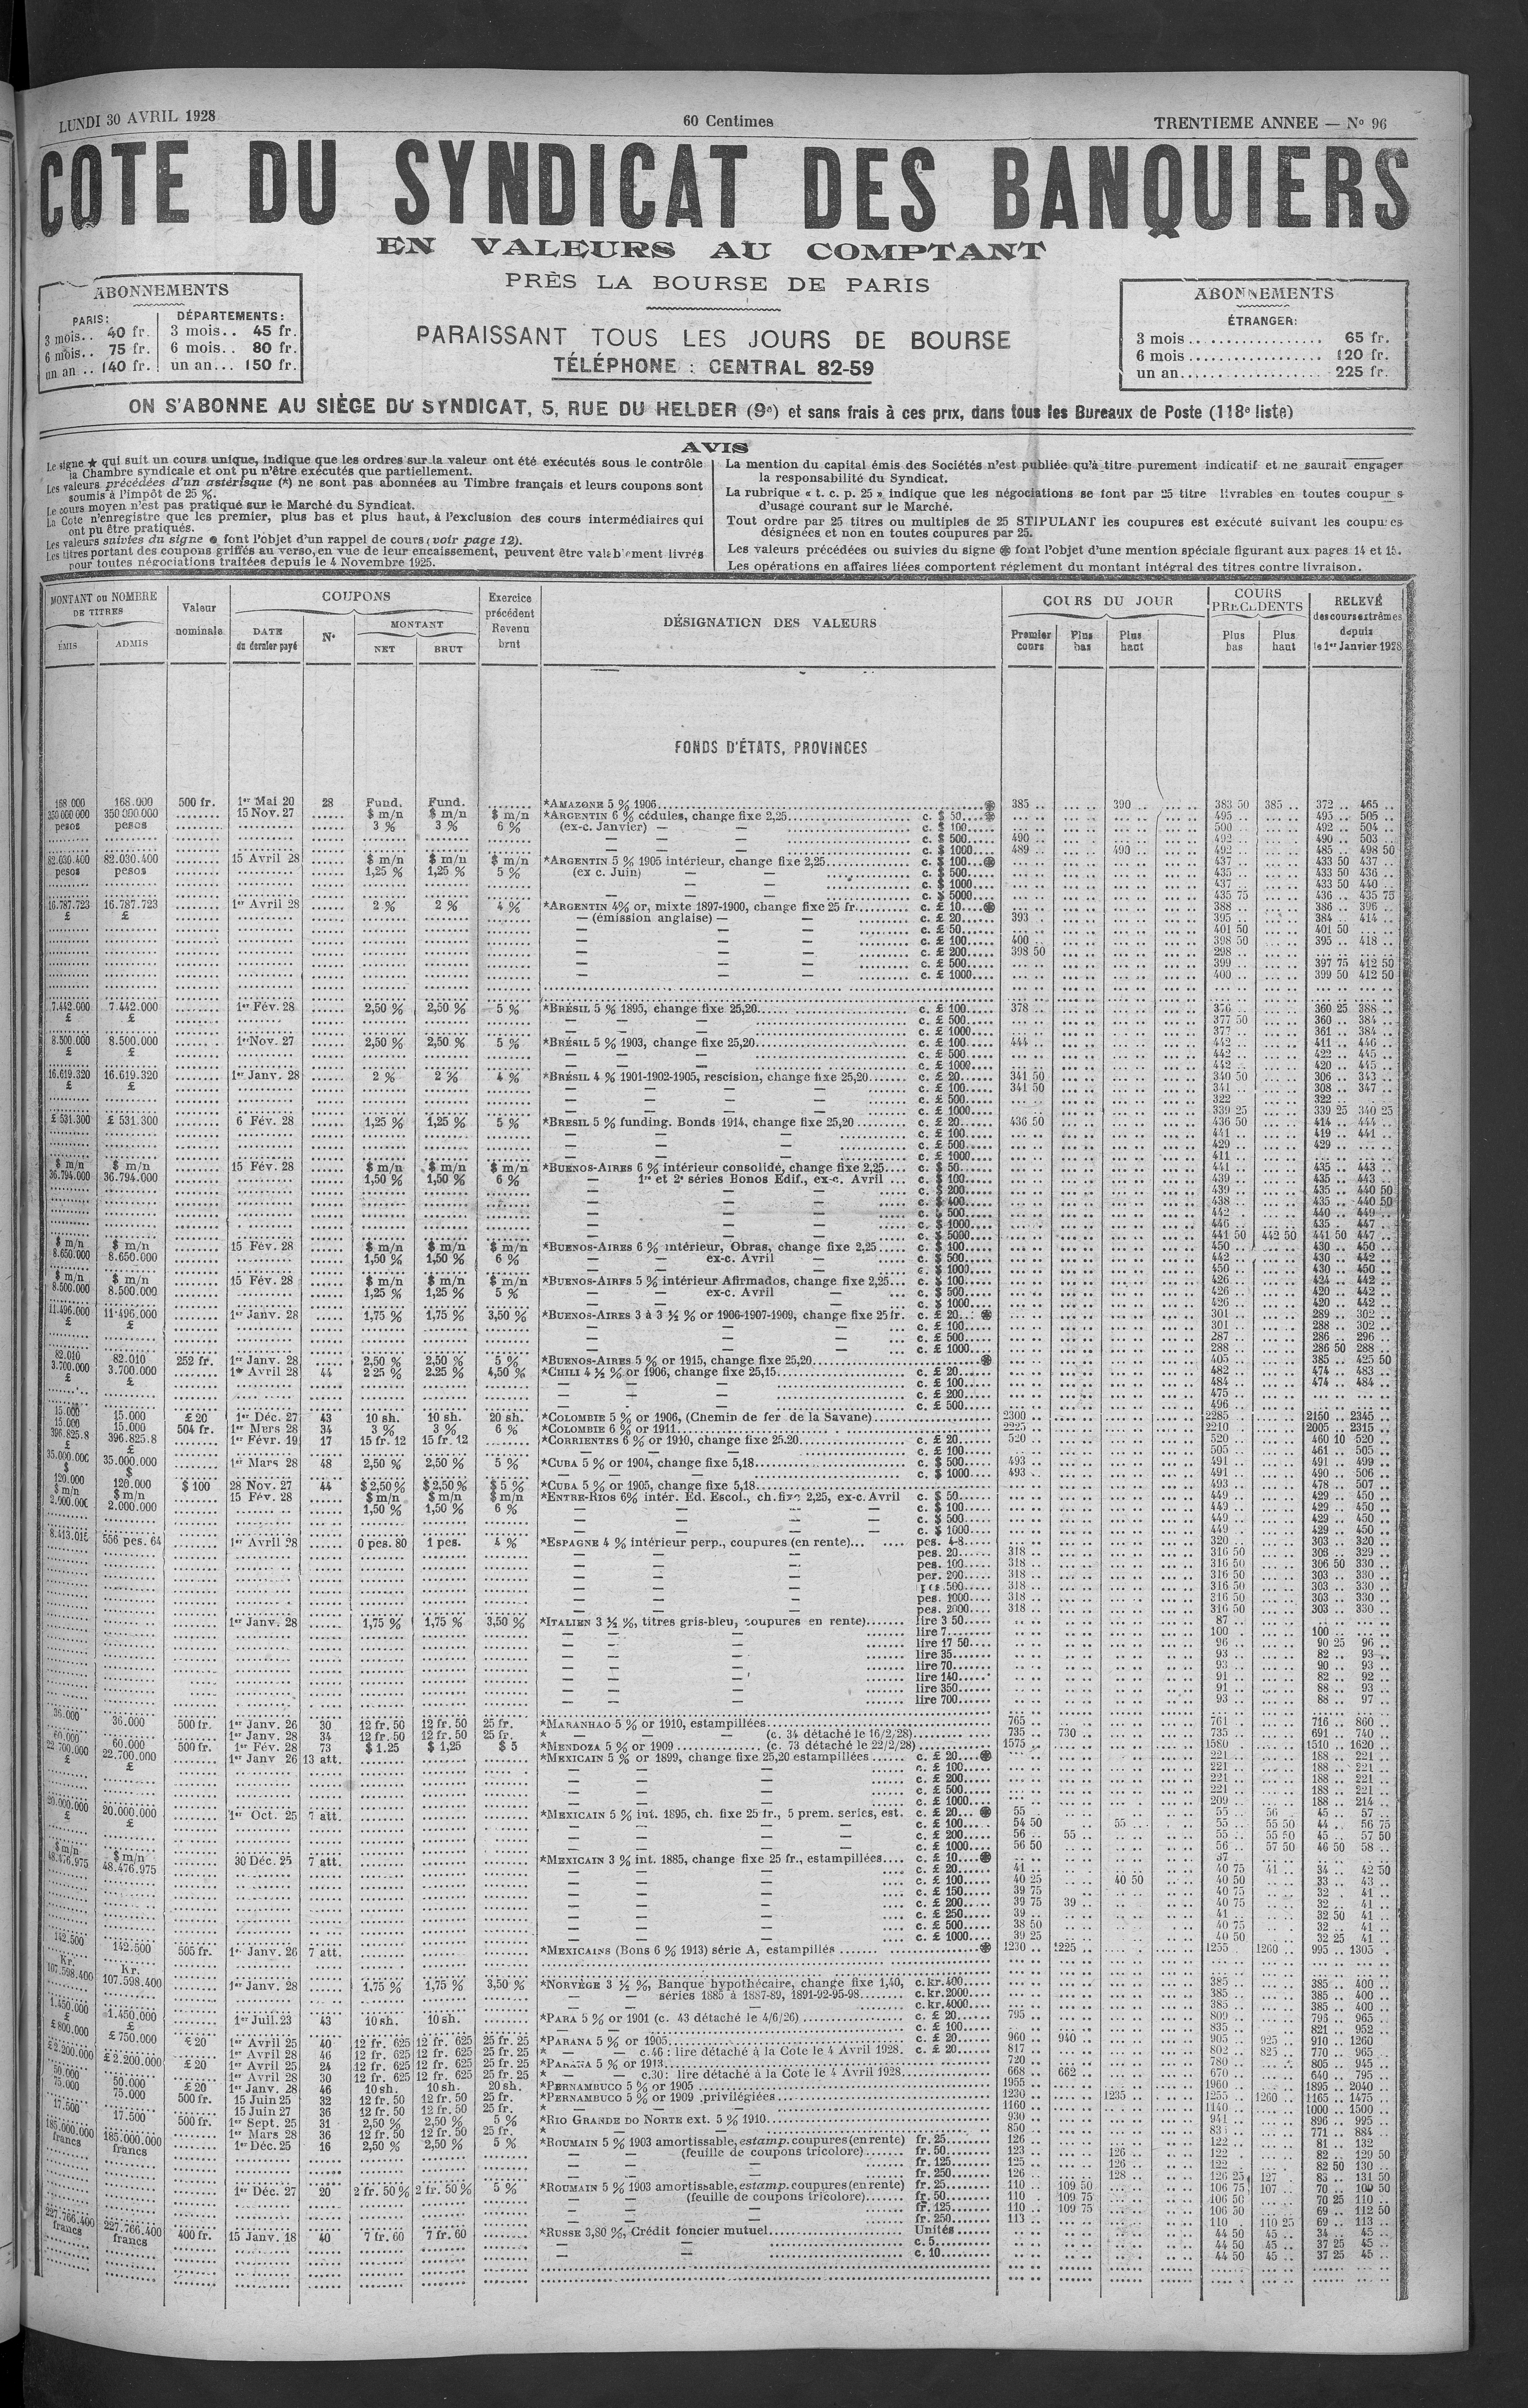 LUNDI 30 AVRIL 1928
60 Centimes
TRENTIEME ANNEE — Nº 96
COTE DU SYNDICAT DES BANQUIERS
EN VALEURS AU COMPTANT
PRÈS LA BOURSE DE PARIS
PARAISSANT TOUS LES JOURS DE BOURSE
TÉLÉPHONE : CENTRAL 82-59
ABONNEMENTS
PARIS: DÉPARTEMENTS:
3 mois.. 40 fr. 3 mois.. 45 fr.
6 mois.. 75 fr. 6 mois.. 80 fr.
un an .. 140 fr. un an... 150 fr.
ABONNEMENTS
ÉTRANGER:
3 mois .................. 65 fr.
6 mois .................. 120 fr.
un an .................. 225 fr.
ON S'ABONNE AU SIÈGE DU SYNDICAT, 5, RUE DU HELDER (9e) et sans frais à ces prix, dans tous les Bureaux de Poste (118e liste)
AVIS
Le signe ★ qui suit un cours unique, indique que les ordres sur la valeur ont été exécutés sous le contrôle
la Chambre syndicale et ont pu n'être exécutés que partiellement.
Les valeurs précédées d'un astérisque (*) ne sont pas abonnées au Timbre français et leurs coupons sont
soumis à l'impôt de 25 %.
Le cours moyen n'est pas pratiqué sur le Marché du Syndicat.
La Cote n'enregistre que les premier, plus bas et plus haut, à l'exclusion des cours intermédiaires qui
ont pu être pratiqués.
Les valeurs suivies du signe ● font l'objet d'un rappel de cours (voir page 12).
Les titres portant des coupons griffés au verso, en vue de leur encaissement, peuvent être valablement livrés
pour toutes négociations traitées depuis le 4 Novembre 1925.
La mention du capital émis des Sociétés n'est publiée qu'à titre purement indicatif et ne saurait engager
la responsabilité du Syndicat.
La rubrique « t. c. p. 25 » indique que les négociations se font par 25 titre livrables en toutes coupur s
d'usage courant sur le Marché.
Tout ordre par 25 titres ou multiples de 25 STIPULANT les coupures est exécuté suivant les coupures
désignées et non en toutes coupures par 25.
Les valeurs précédées ou suivies du signe ֍ font l'objet d'une mention spéciale figurant aux pages 14 et 15.
Les opérations en affaires liées comportent réglement du montant intégral des titres contre livraison.
MONTANT ou NOMBRE DE TITRES
ÉMIS ADMIS
Valeur nominale
COUPONS
DATE du dernier payé
Nº
MONTANT
NET BRUT
Exercice précédent Revenu brut
DÉSIGNATION DES VALEURS
COURS DU JOUR
Premier cours Plus bas Plus haut
COURS PRÉCÉDENTS
Plus bas Plus haut
RELEVÉ des cours extrêmes depuis le 1er Janvier 1928
FONDS D'ÉTATS, PROVINCES
168 000 168.000 500 fr. 1er Mai 20 28 Fund. Fund. *AMAZONE 5 % 1906 385 .. 390 .. 383 50 385 .. 372 .. 465 ..
350 000 000 350 000.000 15 Nov. 27 $ m/n $ m/n $ m/n *ARGENTIN 6 % cédules, change fixe 2,25 c. $ 50 495 .. 495 .. 505 ..
pesos pesos 3 % 3 % 6 % (ex-c. Janvier) — — c. $ 100 500 .. 492 .. 504 ..
— — c. $ 500 490 .. 492 .. 490 .. 503 ..
— — c. $ 1000 489 .. 490 .. 492 .. 485 .. 498 50
82.030.400 82.030.400 15 Avril 28 $ m/n $ m/n $ m/n *ARGENTIN 5 % 1905 intérieur, change fixe 2,25 c. $ 100 437 .. 433 50 437 ..
pesos pesos 1,25 % 1,25 % 5 % (ex c. Juin) — — c. $ 500 435 .. 433 50 436 ..
— — c. $ 1000 437 .. 433 50 440 ..
— — c. $ 5000 435 75 436 .. 435 75
16.787.723 16.787.723 1er Avril 28 2 % 2 % 4 % *ARGENTIN 4% or, mixte 1897-1900, change fixe 25 fr. c. £ 10 388 .. 386 .. 396 ..
£ £ — (émission anglaise) — — c. £ 20 393 .. 395 .. 384 .. 414 ..
— — — c. £ 50 401 50 401 50
— — — c. £ 100 400 .. 398 50 395 .. 418 ..
— — — c. £ 200 398 50 298 ..
— — — c. £ 500 399 .. 397 75 412 50
— — — c. £ 1000 400 .. 399 50 412 50
7.442.000 7.442.000 1er Fév. 28 2,50 % 2,50 % 5 % *BRÉSIL 5 % 1895, change fixe 25,20 c. £ 100 378 .. 376 .. 360 25 388 ..
£ £ — — — c. £ 500 377 50 360 .. 384 ..
— — — c. £ 1000 377 .. 361 .. 384 ..
8.500.000 8.500.000 1er Nov. 27 2,50 % 2,50 % 5 % *BRÉSIL 5 % 1903, change fixe 25,20 c. £ 100 444 .. 442 .. 411 .. 446 ..
£ £ — — — c. £ 500 442 .. 422 .. 445 ..
— — — c. £ 1000 442 .. 420 .. 445 ..
16.619.320 16.619.320 1er Janv. 28 2 % 2 % 4 % *BRÉSIL 4 % 1901-1902-1905, rescision, change fixe 25,20 c. £ 20 341 50 340 50 306 .. 343 ..
£ £ — — — c. £ 100 341 50 341 .. 308 .. 347 ..
— — — c. £ 500 322 .. 322 ..
— — — c. £ 1000 339 25 339 25 340 25
£ 531.300 £ 531.300 6 Fév. 28 1,25 % 1,25 % 5 % *BRESIL 5 % funding. Bonds 1914, change fixe 25,20 c. £ 20 436 50 436 50 414 .. 444 ..
— — — c. £ 100 441 .. 419 .. 441 ..
— — — c. £ 500 429 .. 429 ..
— — — c. £ 1000 411 ..
$ m/n $ m/n 15 Fév. 28 $ m/n $ m/n $ m/n *BUENOS-AIRES 6 % intérieur consolidé, change fixe 2,25 c. $ 50 441 .. 435 .. 443 ..
36.794.000 36.794.000 1,50 % 1,50 % 6 % — 1re et 2e séries Bonos Edif., ex-c. Avril c. $ 100 439 .. 435 .. 443 ..
— — — c. $ 200 439 .. 435 .. 440 50
— — — c. $ 400 438 .. 435 .. 440 50
— — — c. $ 500 442 .. 440 .. 449 ..
— — — c. $ 1000 446 .. 435 .. 447 ..
— — — c. $ 5000 441 50 442 50 441 50 447 ..
$ m/n $ m/n 15 Fév. 28 $ m/n $ m/n $ m/n *BUENOS-AIRES 6 % intérieur, Obras, change fixe 2,25 c. $ 100 450 .. 430 .. 450 ..
8.650.000 8.650.000 1,50 % 1,50 % 6 % — ex-c. Avril — c. $ 500 442 .. 430 .. 442 ..
— — — c. $ 1000 450 .. 430 .. 450 ..
$ m/n $ m/n 15 Fév. 28 $ m/n $ m/n $ m/n *BUENOS-AIRES 5 % intérieur Afirmados, change fixe 2,25 c. $ 100 426 .. 424 .. 442 ..
8.500.000 8.500.000 1,25 % 1,25 % 5 % — ex-c. Avril — c. $ 500 426 .. 420 .. 442 ..
— — — c. $ 1000 426 .. 420 .. 442 ..
11.496.000 11.496.000 1er Janv. 28 1,75 % 1,75 % 3,50 % *BUENOS-AIRES 3 à 3 ½ % or 1906-1907-1909, change fixe 25 fr. c. £ 20 301 .. 289 .. 302 ..
£ £ — — — c. £ 100 301 .. 288 .. 302 ..
— — — c. £ 500 287 .. 286 .. 296 ..
— — — c. £ 1000 288 .. 286 50 288 ..
82.010 82.010 252 fr. 1er Janv. 28 2,50 % 2,50 % 5 % *BUENOS-AIRES 5 % or 1915, change fixe 25,20 405 .. 385 .. 425 50
3.700.000 3.700.000 1er Avril 28 44 2 25 % 2.25 % 4,50 % *CHILI 4 ½ % or 1906, change fixe 25,15 c. £ 20 482 .. 474 .. 483 ..
£ £ — — — c. £ 100 484 .. 474 .. 484 ..
— — — c. £ 200 475 ..
— — — c. £ 500 496 ..
15.000 15.000 £ 20 1er Déc. 27 43 10 sh. 10 sh. 20 sh. *COLOMBIE 5 % or 1906, (Chemin de fer de la Savane) 2300 .. 2285 .. 2150 .. 2345 ..
15.000 15.000 504 fr. 1er Mars 28 34 3 % 3 % 6 % *COLOMBIE 6 % or 1911 2225 .. 2210 .. 2005 .. 2315 ..
396.825.8 396.825.8 1er Févr. 19 17 15 fr. 12 15 fr. 12 *CORRIENTES 6 % or 1910, change fixe 25.20 c. £ 20 520 .. 520 .. 460 10 520 ..
£ £ — — — c. £ 100 505 .. 461 .. 505 ..
35.000.000 35.000.000 1er Mars 28 48 2,50 % 2,50 % 5 % *CUBA 5 % or 1904, change fixe 5,18 c. $ 500 493 .. 491 .. 491 .. 499 ..
$ $ — — — c. $ 1000 493 .. 491 .. 490 .. 506 ..
120.000 120.000 $ 100 28 Nov. 27 44 $ 2,50 % $ 2,50 % $ 5 % *CUBA 5 % or 1905, change fixe 5,18 493 .. 478 .. 507 ..
$ m/n $ m/n 15 Fév. 28 $ m/n $ m/n $ m/n *ENTRE-RIOS 6% intér. Ed. Escol., ch. fixe 2,25, ex-c. Avril c. $ 50 449 .. 429 .. 450 ..
2.000.000 2.000.000 1,50 % 1,50 % 6 % — — — c. $ 100 449 .. 429 .. 450 ..
— — — c. $ 500 449 .. 429 .. 450 ..
— — — c. $ 1000 449 .. 429 .. 450 ..
556 pes. 64 1er Avril 28 0 pes. 80 1 pes. 4 % *ESPAGNE 4 % intérieur perp., coupures (en rente) pes. 4-8 320 .. 303 .. 320 ..
— — — pes. 20 318 .. 316 50 303 .. 329 ..
— — — pes. 100 318 .. 316 50 306 50 330 ..
— — — per. 200 318 .. 316 50 303 .. 330 ..
— — — pes. 500 318 .. 316 50 303 .. 330 ..
— — — pes. 1000 318 .. 316 50 303 .. 330 ..
— — — pes. 2000 318 .. 316 50 303 .. 330 ..
1er Janv. 28 1,75 % 1,75 % 3,50 % *ITALIEN 3 ½ %, titres gris-bleu, coupures en rente) lire 3 50 87 ..
— — — lire 7 100 .. 100 ..
— — — lire 17 50 96 .. 90 25 96 ..
— — — lire 35 93 .. 82 .. 93 ..
— — — lire 70 93 .. 90 .. 93 ..
— — — lire 140 91 .. 82 .. 92 ..
— — — lire 350 91 .. 88 .. 93 ..
— — — lire 700 93 .. 88 .. 97 ..
36.000 36.000 500 fr. 1er Janv. 26 30 12 fr. 50 12 fr. 50 25 fr. *MARANHAO 5 % or 1910, estampillées 765 .. 761 .. 716 .. 860 ..
1er Janv. 28 34 12 fr. 50 12 fr. 50 25 fr. * — — (c. 34 détaché le 16/2/28) 735 .. 730 .. 735 .. 691 .. 740 ..
60.000 60.000 500 fr. 1er Fév. 28 73 $ 1.25 $ 1,25 $ 5 *MENDOZA 5 % or 1909 (c. 73 détaché le 22/2/28) 1575 .. 1580 .. 1510 .. 1620 ..
22.700.000 22.700.000 1er Janv 26 13 att. *MEXICAIN 5 % or 1899, change fixe 25,20 estampillées c. £ 20 221 .. 188 .. 221 ..
£ £ — — — c. £ 100 221 .. 188 .. 221 ..
— — — c. £ 200 221 .. 188 .. 221 ..
— — — c. £ 500 221 .. 188 .. 221 ..
— — — c. £ 1000 209 .. 188 .. 214 ..
20.000.000 20.000.000 1er Oct. 25 7 att. *MEXICAIN 5 % int. 1895, ch. fixe 25 fr., 5 prem. séries, est. c. £ 20 55 .. 55 .. 56 .. 45 .. 57 ..
£ £ — — — c. £ 100 54 50 55 .. 55 .. 55 50 44 .. 56 75
— — — c. £ 200 56 .. 55 .. 55 .. 55 50 45 .. 57 50
— — — c. £ 1000 56 50 56 .. 57 50 46 50 58 ..
$ m/n $ m/n 30 Déc. 25 7 att. *MEXICAIN 3 % int. 1885, change fixe 25 fr., estampillées c. £ 10 37 ..
48.476.975 48.476.975 — — — c. £ 20 41 .. 40 75 41 .. 34 .. 42 50
— — — c. £ 100 40 25 40 50 40 50 33 .. 43 ..
— — — c. £ 150 39 75 40 75 32 .. 41 ..
— — — c. £ 200 39 75 39 .. 40 75 32 .. 41 ..
— — — c. £ 250 39 .. 41 .. 32 50 41 ..
— — — c. £ 500 38 50 40 75 32 .. 41 ..
— — — c. £ 1000 39 25 40 50 32 25 41 ..
142.500 142.500 505 fr. 1er Janv. 26 7 att. *MEXICAINS (Bons 6 % 1913) série A, estampillés 1230 .. 1225 .. 1255 .. 1260 .. 995 .. 1305 ..
Kr. Kr.
107.598.400 107.598.400 1er Janv. 28 1,75 % 1,75 % 3,50 % *NORVÈGE 3 ½ %, Banque hypothécaire, change fixe 1,40, c. kr. 400 385 .. 385 .. 400 ..
— séries 1885 à 1887-89, 1891-92-95-98 c. kr. 2000 385 .. 385 .. 400 ..
— — — c. kr. 4000 385 .. 385 .. 400 ..
1.450.000 1.450.000 1er Juil. 23 43 10 sh. 10 sh. *PARA 5 % or 1901 (c. 43 détaché le 4/6/26) c. £ 20 795 .. 809 .. 793 .. 965 ..
£ £ — — c. £ 100 835 .. 821 .. 952 ..
£ 800.000 £ 750.000 £ 20 1er Avril 25 40 12 fr. 625 12 fr. 625 25 fr. 25 *PARANA 5 % or 1905 c. £ 20 960 .. 940 .. 905 .. 925 .. 910 .. 1260 ..
1er Avril 28 46 12 fr. 625 12 fr. 625 25 fr. 25 * — — c.46 : lire détaché à la Cote le 4 Avril 1928. c. £ 20 817 .. 802 .. 825 .. 770 .. 965 ..
£ 2.200.000 £ 2.200.000 £ 20 1er Avril 25 24 12 fr. 625 12 fr. 625 25 fr. 25 *PARANA 5 % or 1913 720 .. 780 .. 805 .. 945 ..
1er Avril 28 30 12 fr. 625 12 fr. 625 25 fr. 25 * — — c.30: lire détaché à la Cote le 4 Avril 1928 668 .. 662 .. 670 .. 640 .. 795 ..
50.000 50.000 £ 20 1er Janv. 28 46 10 sh. 10 sh. 20 sh. *PERNAMBUCO 5 % or 1905 1955 .. 1960 .. 1895 .. 2040 ..
75.000 75.000 500 fr. 15 Juin 25 32 12 fr. 50 12 fr. 50 25 fr. *PERNAMBUCO 5 % or 1909 privilégiées 1230 .. 1235 .. 1255 .. 1260 .. 1165 .. 1475 ..
15 Juin 27 36 12 fr. 50 12 fr. 50 25 fr. * — — 1160 .. 1140 .. 1000 .. 1500 ..
17.500 17.500 500 fr. 1er Sept. 25 31 2,50 % 2,50 % 5 % *RIO GRANDE DO NORTE ext. 5 % 1910 930 .. 941 .. 896 .. 995 ..
1er Mars 28 36 12 fr. 50 12 fr. 50 25 fr. * — — 850 .. 771 .. 884 ..
185.000.000 185.000.000 1er Déc. 25 16 2,50 % 2,50 % 5 % *ROUMAIN 5 % 1903 amortissable, estamp. coupures (en rente) fr. 25 126 .. 122 .. 81 .. 132
francs francs — (feuille de coupons tricolore) fr. 50 123 .. 126 .. 122 .. 82 .. 129 50
— — — fr. 125 125 .. 126 .. 122 .. 82 50 130 ..
— — — fr. 250 126 .. 128 .. 126 25 127 .. 83 .. 131 50
1er Déc. 27 20 2 fr. 50 % 2 fr. 50 % 5 % *ROUMAIN 5 % 1903 amortissable, estamp. coupures (en rente) fr. 25 110 .. 109 50 106 75 107 .. 70 .. 109 50
— (feuille de coupons tricolore) fr. 50 110 .. 109 75 106 50 70 25 110 ..
— — — fr. 125 110 .. 109 75 106 50 69 .. 112 50
— — — fr. 250 113 .. 110 .. 110 25 69 .. 113 ..
227.766.400 227.766.400 400 fr. 15 Janv. 18 40 7 fr. 60 7 fr. 60 *RUSSE 3,80 %, Crédit foncier mutuel Unités 44 50 45 .. 34 .. 45 ..
francs francs — — c. 5 44 50 45 .. 37 25 45 ..
— — c. 10 44 50 45 .. 37 25 45 ..